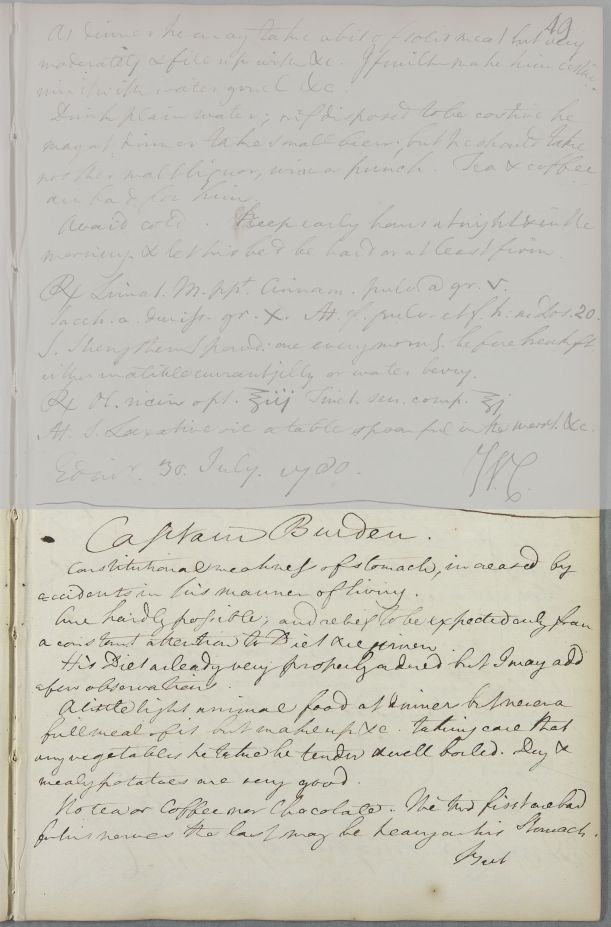 49
At dinner he may take a bit of solid meat but very
moderately & fill up with &c. If milk make him costive
mix it with water gruel &c.
Drink plain water; or if disposed to be costive he
may at dinner take small beer; but he should take
no other malt liquor, wine or punch. Tea & coffee
are bad for him.
Avoid cold. Keep early hours at night & in the
morning & let his bed be hard or at least firm.
Rx Limat. M. ppt. Cinnam. pulv. a gr. v.
Sacch. a. gr. X. M. f. pulv. et f. h: m: Dos. 20.
S. Strengthening powd: one every morng. before breakft.
with a little currant jelly or water
Rx Ol. ricini opt. ℥iij Tinct. sen. comp. ℥j
M. S. Laxative oil a table spoonful in the &c.
Edinr. 30. July. 1780.
W C
Captain Burden.
Constitutional weakness of stomach, increased by
accidents in his manner of living.
Cure hardly possible; and relief to be expected only from
a constant attention to Diet &c given.
His Diet already very properly ordered but I may add
a few observations.
A little light animal food at dinner but never a
full meal of it but make up &c. taking care that
any vegetables he take be tender & well boiled. Dry &
mealy potatoes are very good.
No tea or Coffee nor Chocolate. The two first are bad
for his nerves the last may be heavy on his Stomach.
But